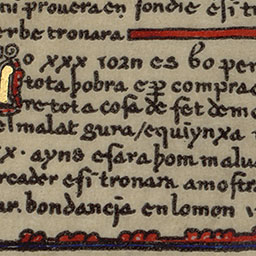 ni prouera en fondie e si tr
erbe tronara
o xxx iorn es bo per
tota hobra e per comprar
re tota cosa de fet dem
el malat gura / equiynxa
x. ayns esara hom malua
rcader esi tronara amostra
ar. bondancia en lo mon